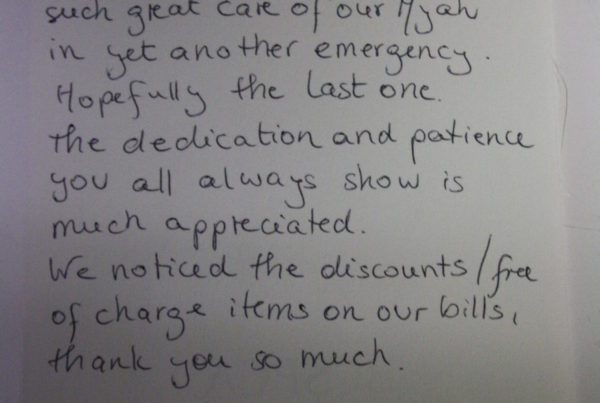 such great care of our Myah
in yet another emergency.
Hopefully the last one.
the dedication and patience
you all always show is
much appreciated.
We noticed the discounts/free
of charge items on our bills,
thank you so much.